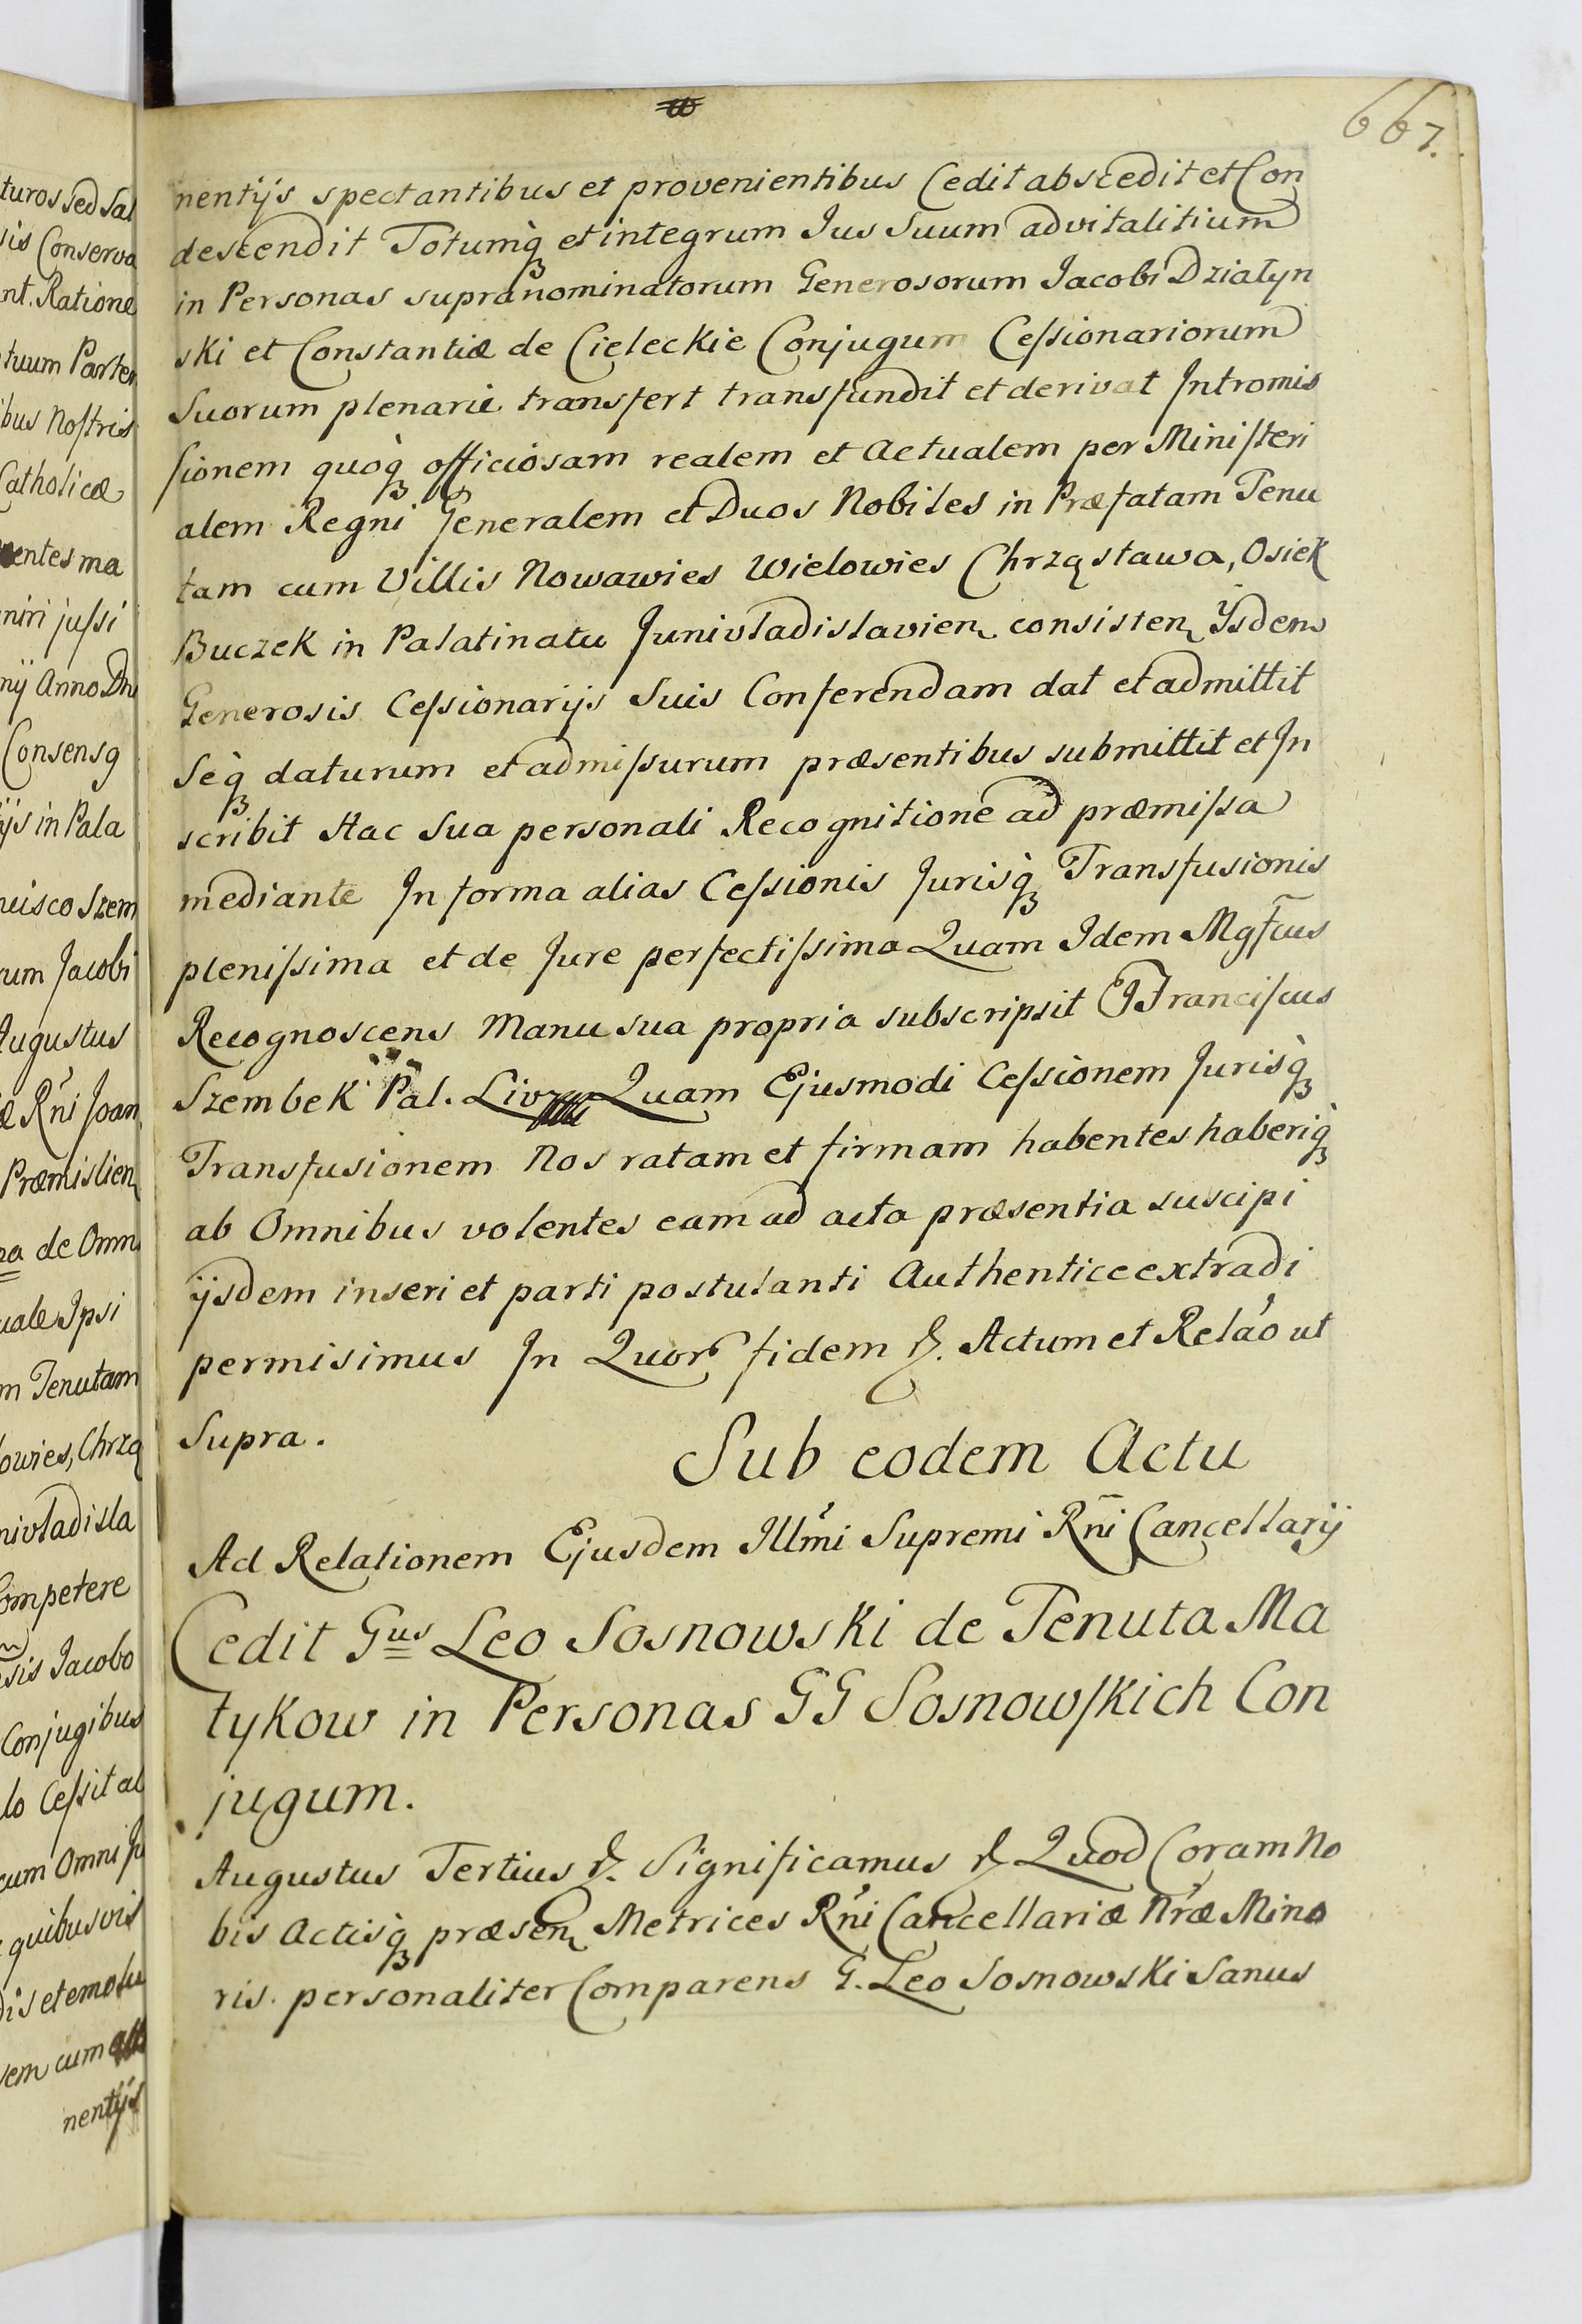 667.
nentijs spectantibus et provenientibus Cedit abscedit et Con
descendit Totumq́ꝫ et integrum Jus Suum advitalitium
in Personas supranominatorum Generosorum Jacobi Działyn
ski et Constantiæ de Cieleckie Conjugum Ceſsionariorum
Suorum plenarie transfert transfundit et derivat Intromis
ſionem quoq́ꝫ officiosam realem et Actualem per Miniſteri
alem Regni Generalem et Duos Nobiles in Præfatam Tenu
tam cum Villis Nowawies Wielowies Chrząstawa, Osiek
Buczek in Palatinatu Junivladislavien consisten Ysdem
Generosis Ceſsionarijs Suis Conferendam dat et admittit
Seq́ꝫ daturum et admiſsurum præsentibus submittit et In
scribit Hac Sua personali Recognitione ad præmiſsa
mediante In forma alias Ceſsionis Jurisq́ꝫ Transfusionis
pleniſsima et de Jure perfectiſsima Quam Idem Mgfcus
Recognoscens Manu sua propria subscripsit Franciſcus
Szembek Pal. Quam Ejusmodi Ceſsionem Jurisq́ꝫ
Transfusionem Nos ratam et firmam habentes haberiq́ꝫ
ab Omnibus volentes eam ad acta præsentia suscipi
ijsdem inseri et parti postulanti Authentice extradi
permisimus In Quor fidem &. Actum et Relao ut
Supra.
Sub eodem Actu
Ad Relationem Ejusdem Illmi Supremi Rni Cancellarij
Cedit Gus Leo Sosnowski de Tenuta Ma
tykow in Personas GG Sosnowſkich Con
jugum.
Augustus Tertius &. Significamus & Quod Coram No
bis Actisq́ꝫ præsen Metrices Rni Cancellariæ Nræ Mino
ris personaliter Comparens G. Leo Sosnowski Sanus